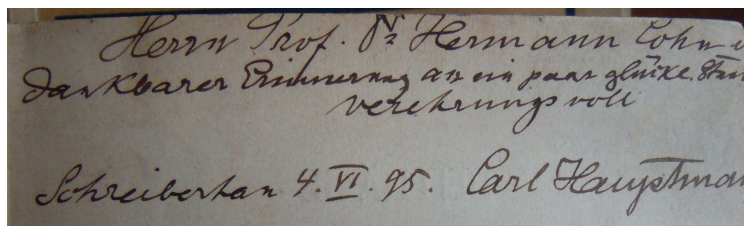 Herrn Prof. Dr Hermann Cohn
dankbarer Erinnerung an ein paar glückl. Stun
verehrungsvoll
Schreiberhau 4. VI. 95. Carl Hauptman